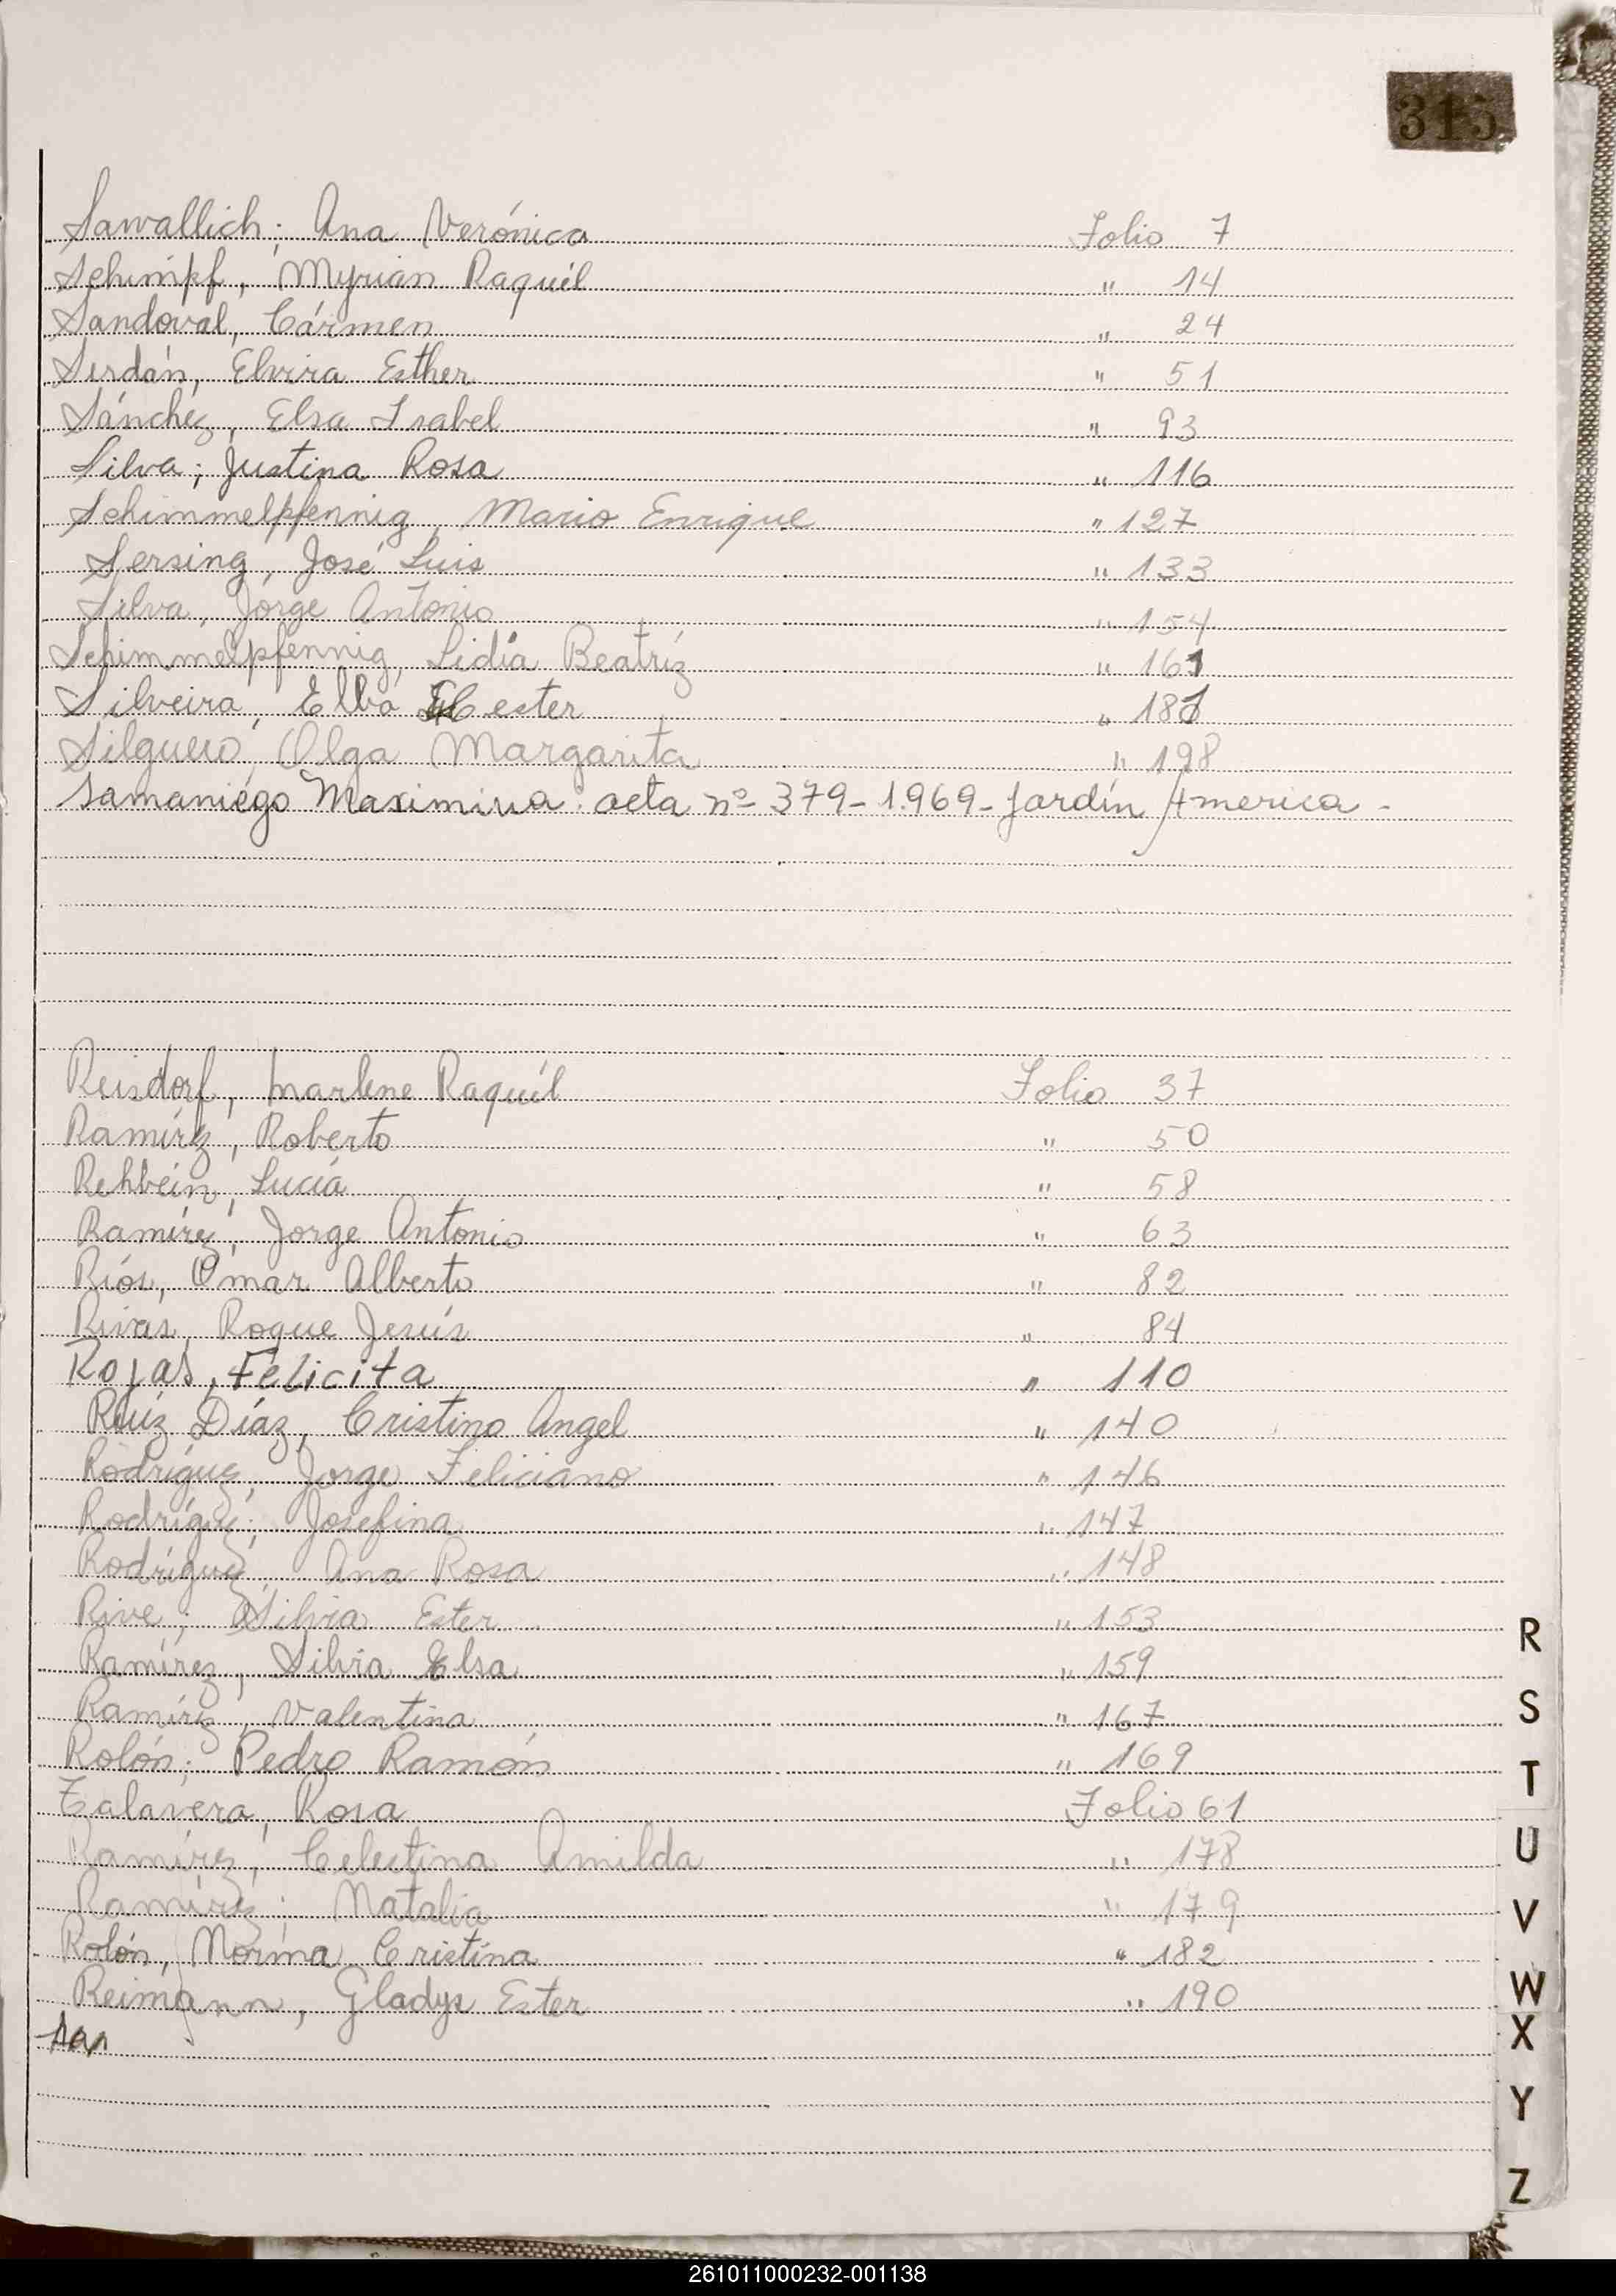 315
Sawallich; Ana Verónica Folio 7
Schimpf, Myrian Raquél " 14
Sandoval, Cármen " 24
Serdán, Elvira Esther " 51
Sánchez, Elsa Isabel " 93
Silva; Justina Rosa " 116
Schimmelpfennig, Mario Enrique " 127
Sersing, José Luis " 133
Silva, Jorge Antonio " 154
Schimmelpfennig, Lidia Beatríz " 161
Silveira, Elba Ester " 181
Silguero, Olga Margarita " 198
Samaniego Maximina: acta nº 379-1.969- Jardín America -
Reisdorf, Marlene Raquél Folio 37
Ramírez, Roberto " 50
Rehbein, Lucía " 58
Ramírez, Jorge Antonio " 63
Ríos, Omar Alberto " 82
Rivas, Roque Jesús " 84
Rojas, Felicita " 110
Ruíz Díaz, Cristino Angel " 140
Rodríguez, Jorge Feliciano " 146
Rodríguez; Josefina " 147
Rodríguez, Ana Rosa " 148
Rive; Silvia Ester " 153
Ramírez, Silvia Elsa " 159
Ramírez, Valentina " 167
Rolón; Pedro Ramón " 169
Talavera, Rosa Folio 61
Ramírez, Celestina Amilda " 178
Ramírez; Natalia " 179
Rolón, Norma Cristina " 182
Reimann, Gladys Ester " 190
R
S
T
U
V
W
X
Y
Z
261011000232-001138